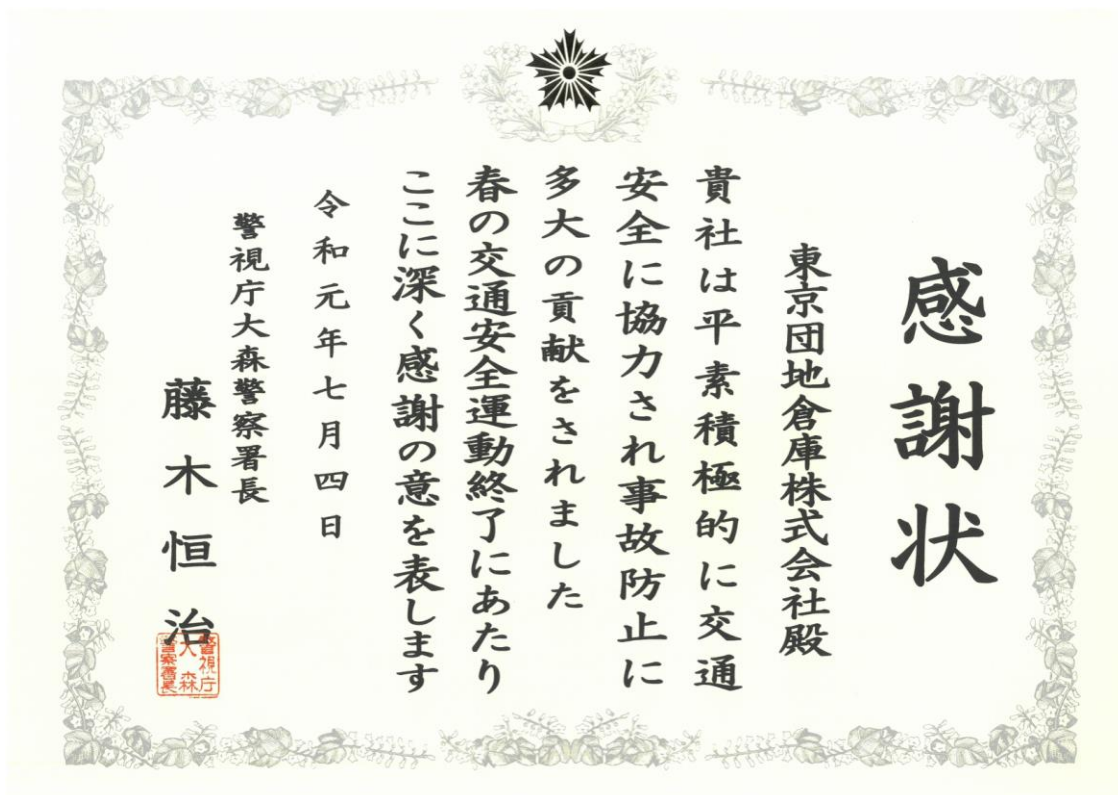 感謝状
東京団地倉庫株式会社殿
貴社は平素積極的に交通
安全に協力され事故防止に
多大の貢献をされました
春の交通安全運動終了にあたり
ここに深く感謝の意を表します
令和元年七月四日
警視庁大森警察署長
藤木恒治
警視庁
大森
警察署長